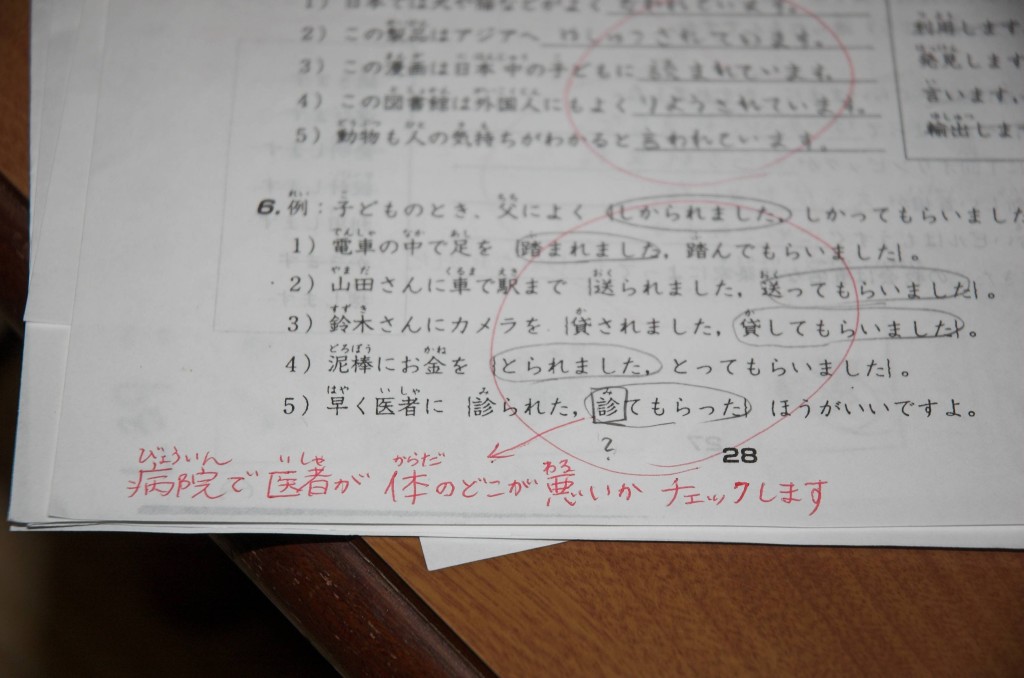 1) 日本では犬や猫などがよく
2) この製品はアジアへ ゆしゅつされています。
3) この漫画は日本中の子どもに 読まれています。
4) この図書館は外国人にもよく りようされています。
5) 動物も人の気持ちがわかると 言われています。
利用します
発見します
言います,
輸出しま
6. 例：子どものとき、父によく {しかられました, しかってもらいました
1) 電車の中で足を {踏まれました, 踏んでもらいました}。
2) 山田さんに車で駅まで {送られました, 送ってもらいました}。
3) 鈴木さんにカメラを {貸されました, 貸してもらいました}。
4) 泥棒にお金を {とられました, とってもらいました}。
5) 早く医者に {診られた, 診てもらった} ほうがいいですよ。
?
28
病院で医者が体のどこが悪いかチェックします